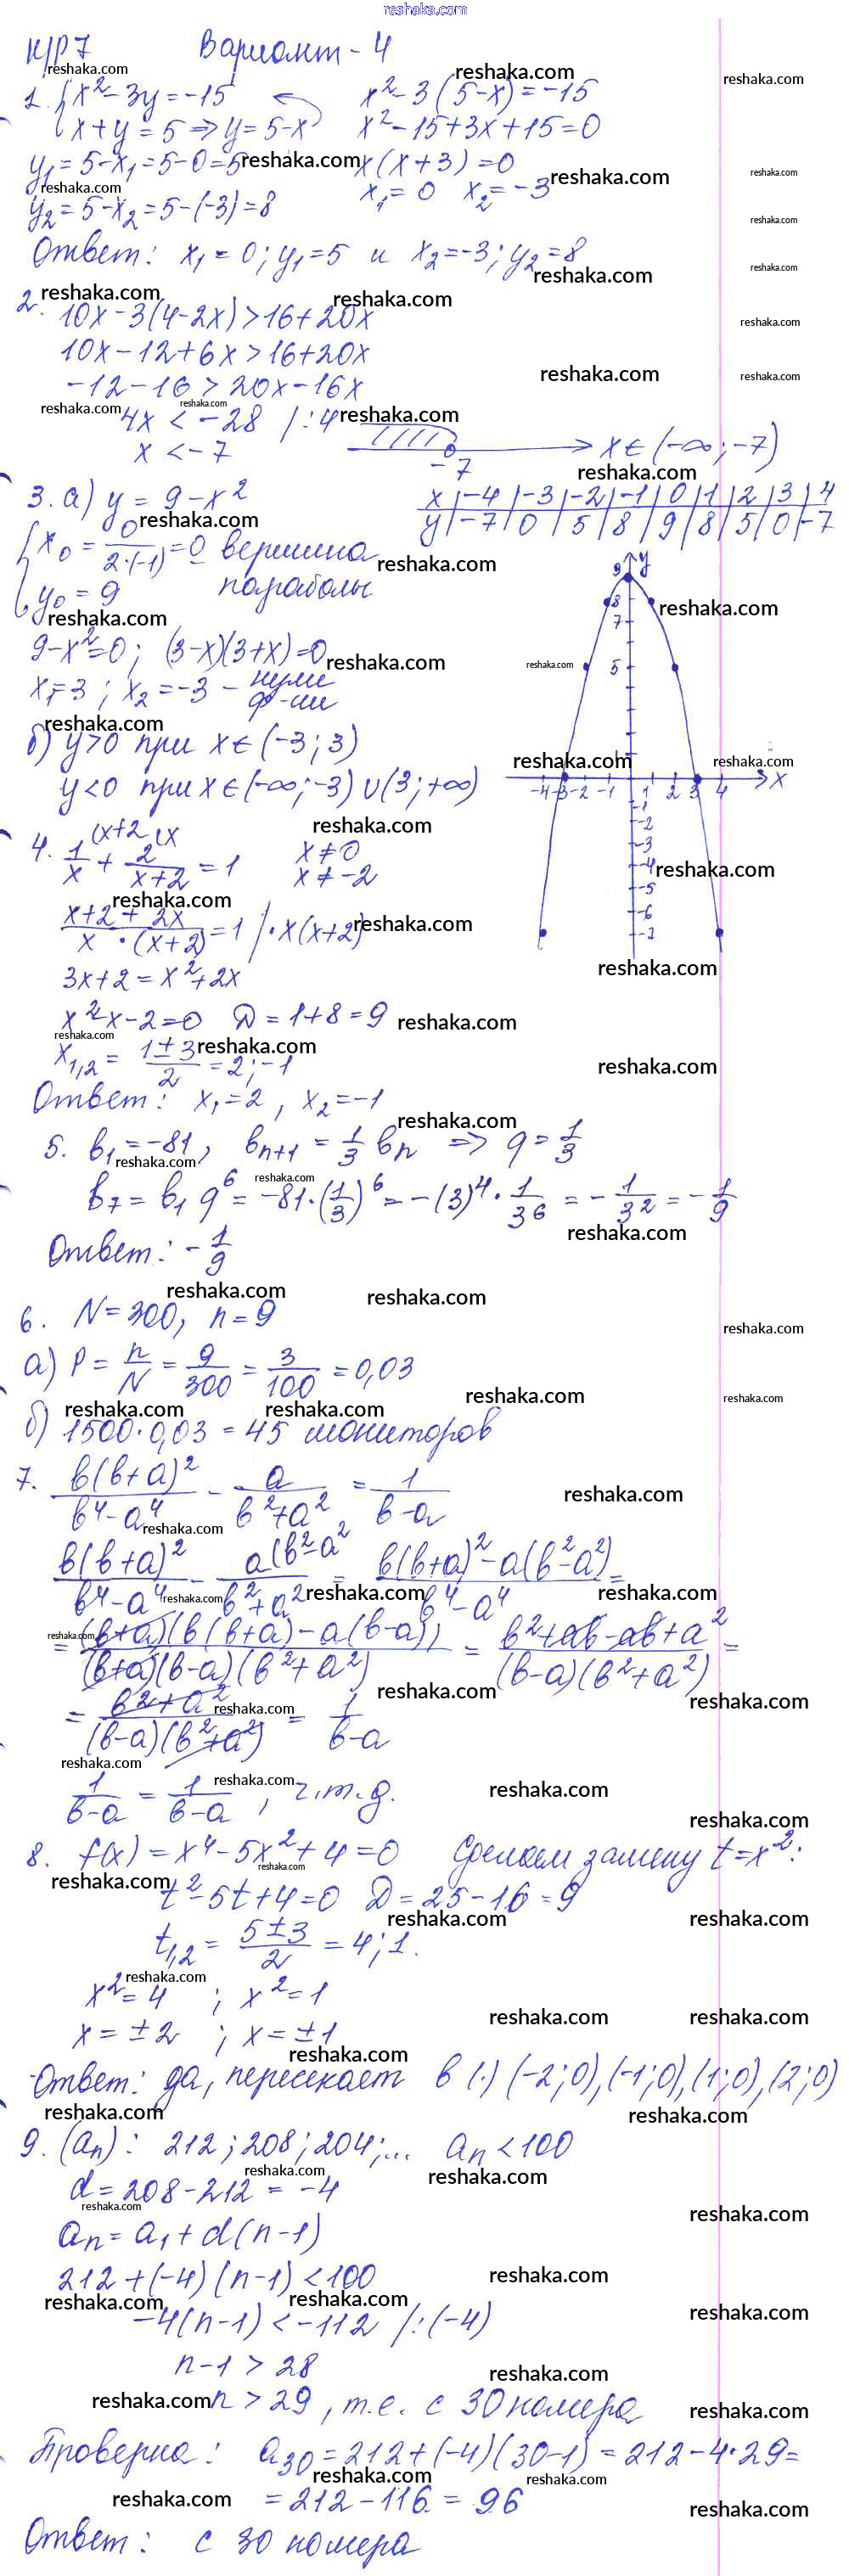 reshaka.com
К/Р 7 Вариант - 4
1. { x² - 3y = -15
x + y = 5 ⇒ y = 5 - x
x² - 3(5 - x) = -15
x² - 15 + 3x + 15 = 0
y₁ = 5 - x₁ = 5 - 0 = 5 x(x + 3) = 0
y₂ = 5 - x₂ = 5 - (-3) = 8 x₁ = 0 x₂ = -3
Ответ: x₁ = 0; y₁ = 5 и x₂ = -3; y₂ = 8
2. 10x - 3(4 - 2x) > 16 + 20x
10x - 12 + 6x > 16 + 20x
-12 - 16 > 20x - 16x
4x < -28 /:4
x < -7 -7 x ∈ (-∞; -7)
3. а) y = 9 - x²
x | -4 | -3 | -2 | -1 | 0 | 1 | 2 | 3 | 4
y | -7 | 0 | 5 | 8 | 9 | 8 | 5 | 0 | -7
{ x₀ = 0/(2·(-1)) = 0 вершина
y₀ = 9 параболы
9 - x² = 0; (3 - x)(3 + x) = 0
x₁ = 3; x₂ = -3 - нули
ф-ии
б) y > 0 при x ∈ (-3; 3)
y < 0 при x ∈ (-∞; -3) ∪ (3; +∞)
9 y
8
7
5
-4 -3 -2 -1 1 2 3 4 x
-1
-2
-3
-4
-5
-6
-7
4. 1/x (x+2 + 2/(x+2) (x = 1 x ≠ 0
x ≠ -2
(x + 2 + 2x)/(x · (x + 2)) = 1 /· x(x + 2)
3x + 2 = x² + 2x
x² - x - 2 = 0 D = 1 + 8 = 9
x₁,₂ = (1 ± 3)/2 = 2; -1
Ответ: x₁ = 2, x₂ = -1
5. b₁ = -81, bₙ₊₁ = 1/3 bₙ ⇒ q = 1/3
b₇ = b₁ q⁶ = -81 · (1/3)⁶ = -(3)⁴ · 1/3⁶ = -1/3² = -1/9
Ответ: -1/9
6. N = 300, n = 9
а) P = n/N = 9/300 = 3/100 = 0,03
б) 1500 · 0,03 = 45 мониторов
7. b(b + a)²/(b⁴ - a⁴) - a/(b² + a²) = 1/(b - a)
b(b + a)²/(b⁴ - a⁴) - a(b² - a²/(b² + a²) = (b(b + a)² - a(b² - a²))/(b⁴ - a⁴) =
= (b + a)(b(b + a) - a(b - a))/((b + a)(b - a)(b² + a²)) = (b² + ab - ab + a²)/((b - a)(b² + a²)) =
= (b² + a²)/((b - a)(b² + a²)) = 1/(b - a)
1/(b - a) = 1/(b - a), ч.т.д.
8. f(x) = x⁴ - 5x² + 4 = 0 Сделаем замену t = x²:
t² - 5t + 4 = 0 D = 25 - 16 = 9
t₁,₂ = (5 ± 3)/2 = 4; 1.
x² = 4 ; x² = 1
x = ±2 ; x = ±1
Ответ: да, пересекает в (·) (-2; 0), (-1; 0), (1; 0), (2; 0)
9. (aₙ): 212; 208; 204; ... aₙ < 100
d = 208 - 212 = -4
aₙ = a₁ + d(n - 1)
212 + (-4)(n - 1) < 100
-4(n - 1) < -112 /:(-4)
n - 1 > 28
n > 29, т.е. с 30 номера
Проверка: a₃₀ = 212 + (-4)(30 - 1) = 212 - 4·29 =
= 212 - 116 = 96
Ответ: с 30 номера